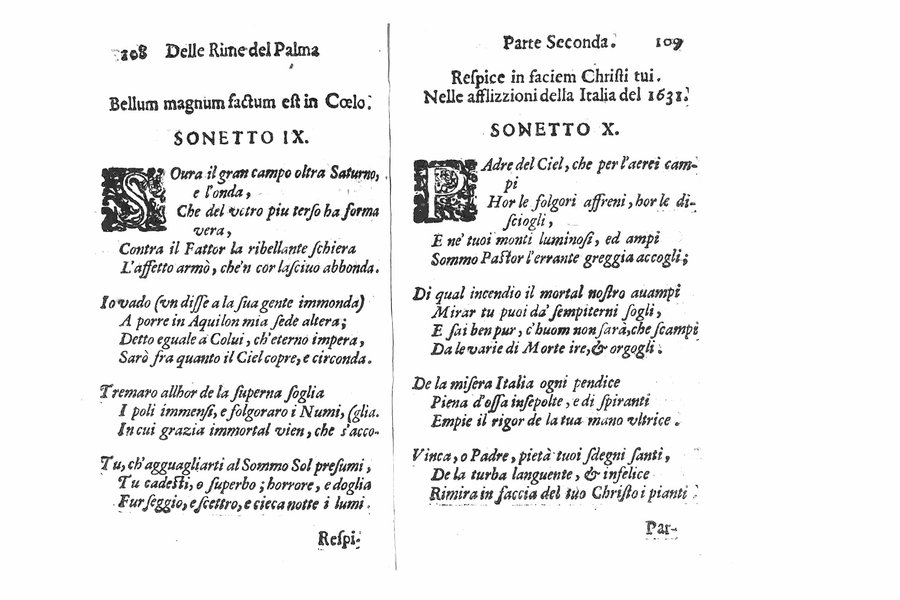 108 Delle Rime del Palma
Bellum magnum factum est in Cœlo.
SONETTO IX.
SOura il gran campo oltra Saturno,
e l'onda,
Che del vetro piu terso ha forma
vera,
Contra il Fattor la ribellante schiera
L'affetto armò, che'n cor lasciuo abbonda.
Io vado (vn disse a la sua gente immonda)
A porre in Aquilon mia sede altera;
Detto eguale a Colui, ch'eterno impera,
Sarò fra quanto il Ciel copre, e circonda.
Tremaro allhor de la superna soglia
I poli immensi, e folgoraro i Numi, (glia.
In cui grazia immortal vien, che s'acco-
Tu, ch'agguagliarti al Sommo Sol presumi,
Tu cadesti, o superbo; horrore, e doglia
Fur seggio, e scettro, e cieca notte i lumi.
Respi-
Parte Seconda. 109
Respice in faciem Christi tui.
Nelle afflizzioni della Italia del 1631.
SONETTO X.
PAdre del Ciel, che per l'aerei cam-
pi
Hor le folgori affreni, hor le di-
sciogli,
E ne' tuoi monti luminosi, ed ampi
Sommo Pastor l'errante greggia accogli;
Di qual incendio il mortal nostro auampi
Mirar tu puoi da' sempiterni sogli,
E sai ben pur, c'huom non sarà, che scampi
Da le varie di Morte ire, & orgogli.
De la misera Italia ogni pendice
Piena d'ossa insepolte, e di spiranti
Empie il rigor de la tua mano vltrice.
Vinca, o Padre, pietà tuoi sdegni santi,
De la turba languente, & infelice
Rimira in faccia del tuo Christo i pianti.
Par-